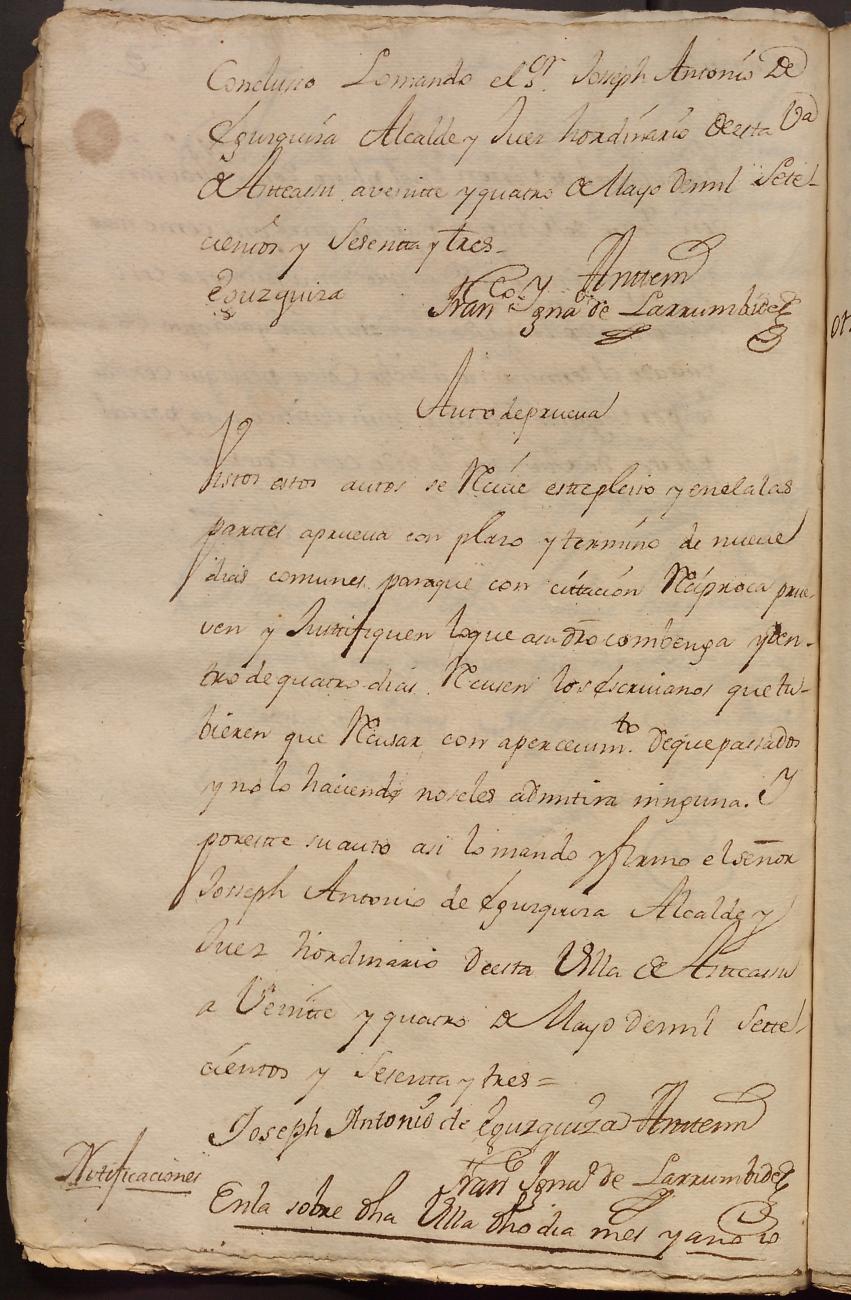 Concluso Lo mando el Sr. Joseph Antonio De
Eguzquisa Alcalde y Juez hordinario de esta Va
de Asteasu a veintte y quatro de Mayo de mil Sete-
cientos y Sesentta y tres=
Eguzquiza Antemi
Franco Ygnao de Larrumbide
Auto de prueva
Vistos estos autos se Reciue este pleito y en el a las
parttes a prueva con plazo y termino de nueue
dias comunes para que con cittacion Reciproca prue-
ven y Justtifiquen lo que a su dro combenga y den-
tro de quatro dias Recusen los escriuanos que tu-
bieren que Recusar con apercevimto. de que passados
y no lo haciendo no se les admitira ninguna. Y
por este su auto asi lo mando y firmo el señor
Joseph Antonio de Eguzquisa Alcalde y
Juez hordinario de esta Villa de Asteasu
a Veintte y quatro de Mayo de mil Sette-
cientos y Sesenta y tres=
Joseph Antonio de Eguzquiza Antemi
Franco Ygnao de Larrumbide
Notificaciones
En la sobre dha Villa dho dia mes y año io